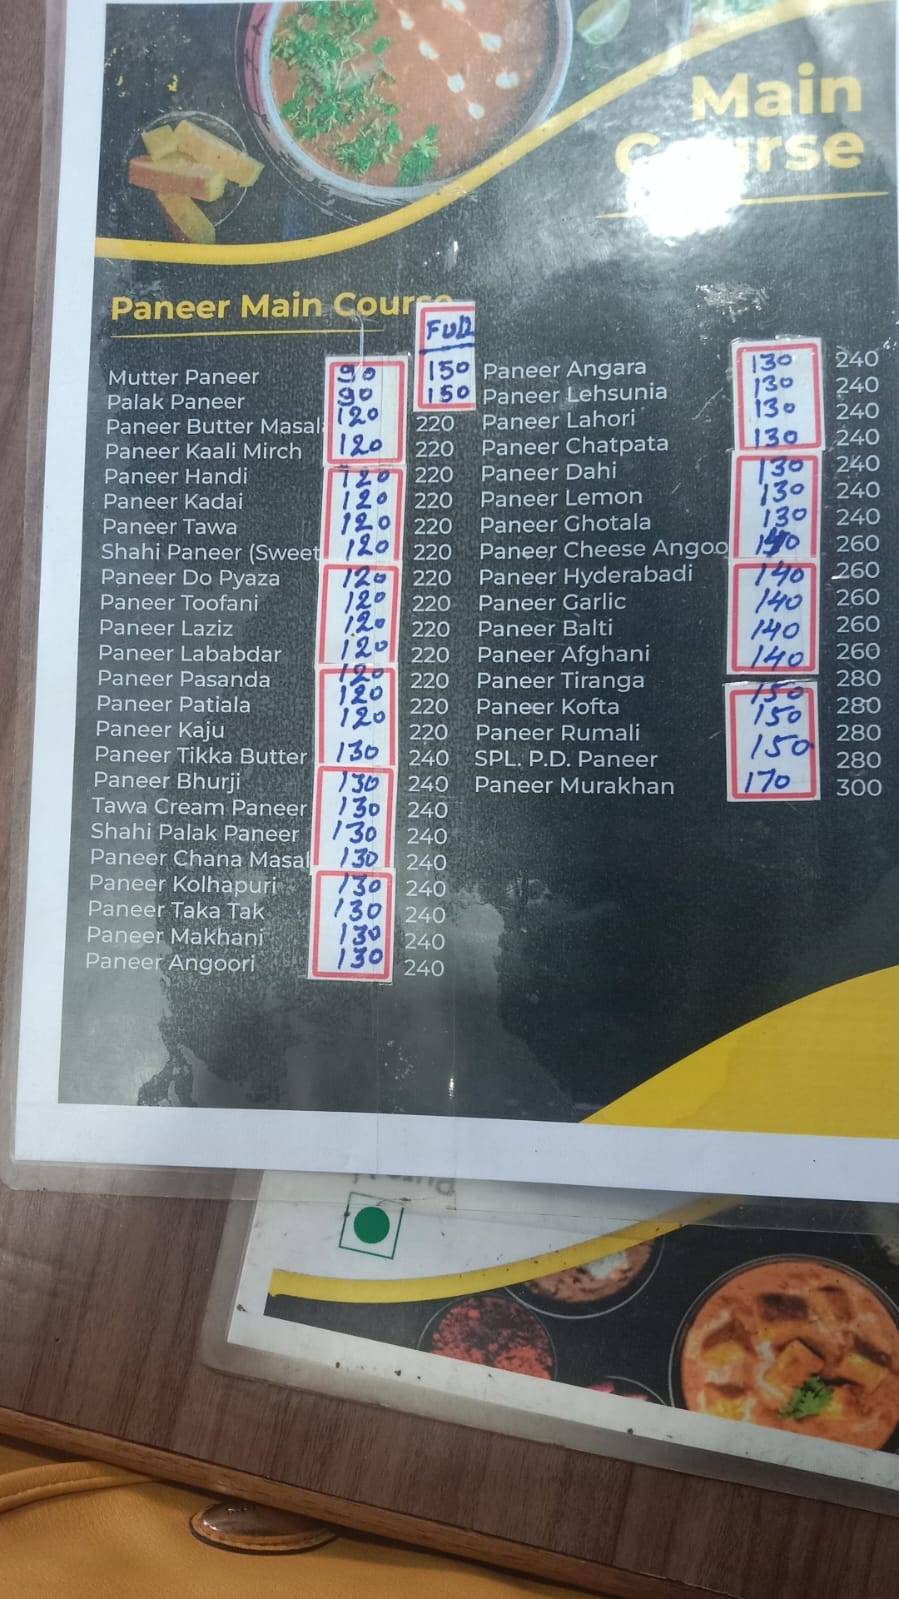 Main
Course
Paneer Main Course
Full
Mutter Paneer 90 150
Palak Paneer 90 150
Paneer Butter Masal 120 220
Paneer Kaali Mirch 120 220
Paneer Handi 120 220
Paneer Kadai 120 220
Paneer Tawa 120 220
Shahi Paneer (Sweet 120 220
Paneer Do Pyaza 120 220
Paneer Toofani 120 220
Paneer Laziz 120 220
Paneer Lababdar 120 220
Paneer Pasanda 120 220
Paneer Patiala 120 220
Paneer Kaju 120 220
Paneer Tikka Butter 130 240
Paneer Bhurji 130 240
Tawa Cream Paneer 130 240
Shahi Palak Paneer 130 240
Paneer Chana Masal 130 240
Paneer Kolhapuri 130 240
Paneer Taka Tak 130 240
Paneer Makhani 130 240
Paneer Angoori 130 240
Paneer Angara 130 240
Paneer Lehsunia 130 240
Paneer Lahori 130 240
Paneer Chatpata 130 240
Paneer Dahi 130 240
Paneer Lemon 130 240
Paneer Ghotala 130 240
Paneer Cheese Angoo 140 260
Paneer Hyderabadi 140 260
Paneer Garlic 140 260
Paneer Balti 140 260
Paneer Afghani 140 260
Paneer Tiranga 150 280
Paneer Kofta 150 280
Paneer Rumali 150 280
SPL. P.D. Paneer 280
Paneer Murakhan 170 300